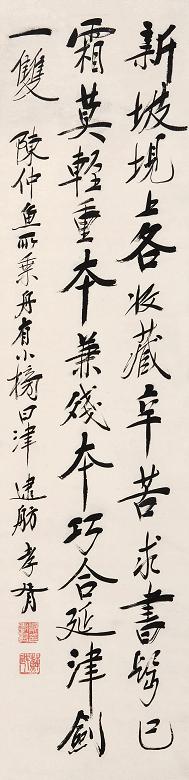 新坡上各收藏辛苦求書鬢已
霜莫輕重本兼殘本巧合延津劍
一雙
陳仲魚所乘舟有小榜曰津逮舫 孝胥